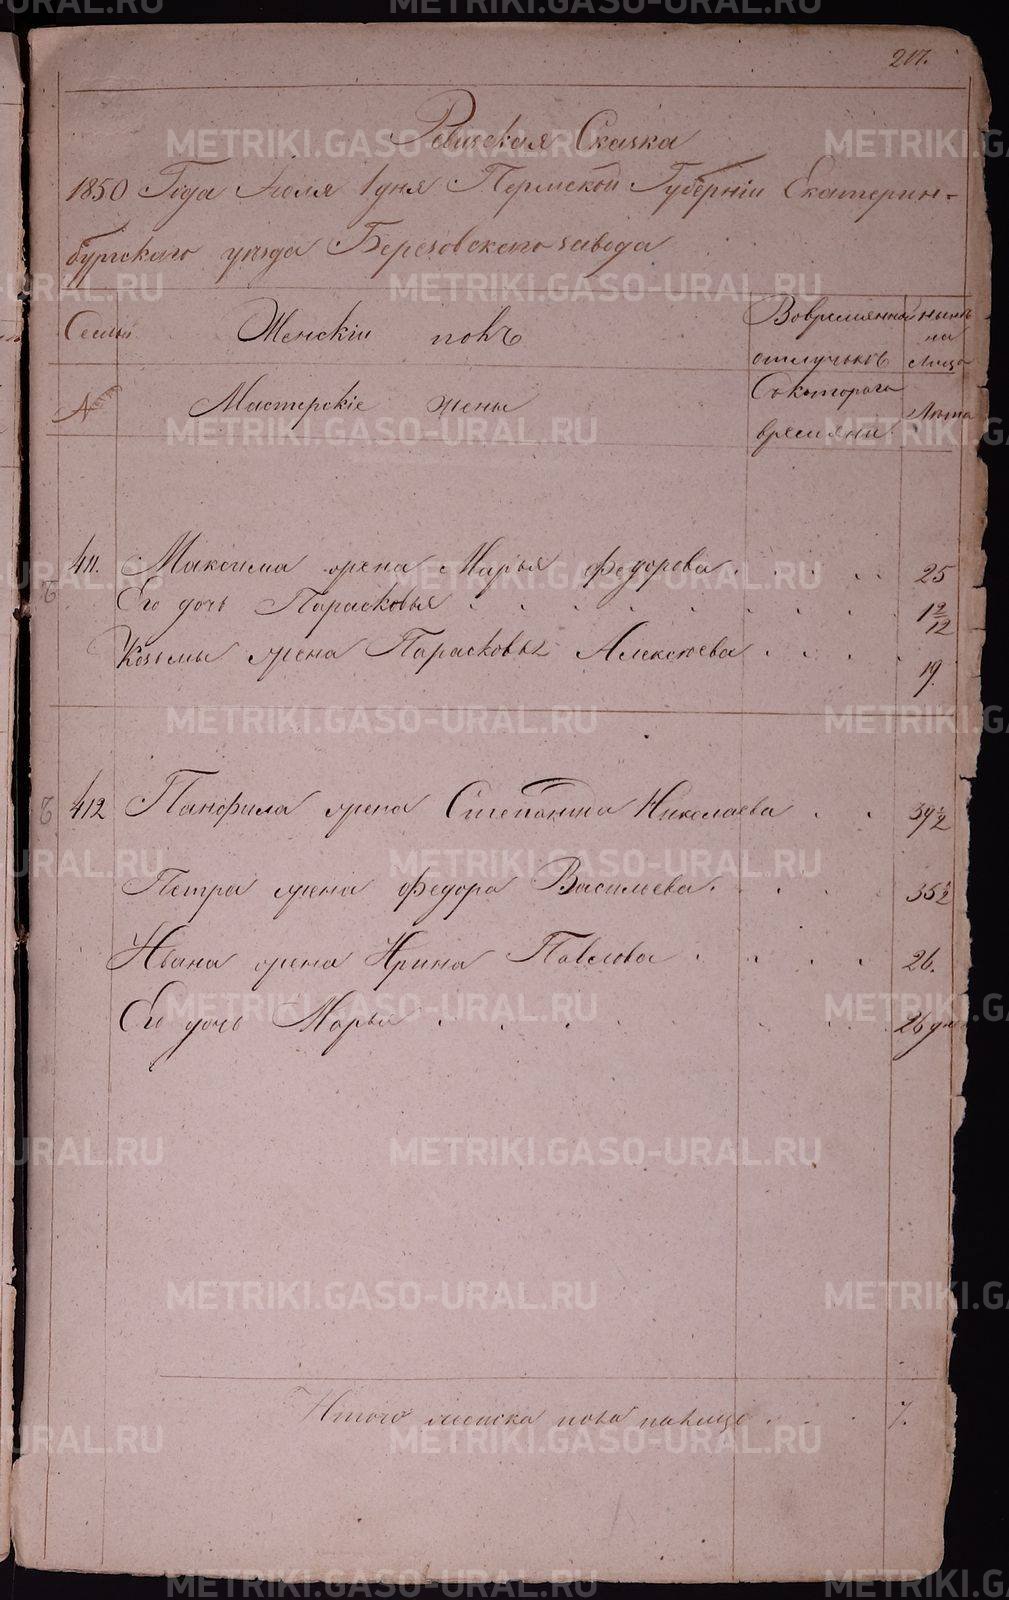 217.
Ревизская Сказка
1850 Года Июля 1 дня Пермской Губерніи Екатерин-
бургскаго уѣзда Березовскаго завода
Семьи
Женскій полъ
Вовремянной
отлучькѣ
нынѣ
на
лицо
№
Мастерскіе жены
Съ котораго
времяни
Лѣта
411. Максима жена Марья Федорова 25
Его дочь Парасковья 1 2/12
Козьмы жена Парасковья Алексѣева 19.
412 Панфила жена Степанида Николаева 39 1/2
Петра жена Федора Васильева. 35 1/2
Ивана жена Ирина Павлова 26.
Его дочь Марья 26 дней
Итого женска пола на лицо 7.
METRIKI.GASO-URAL.RU